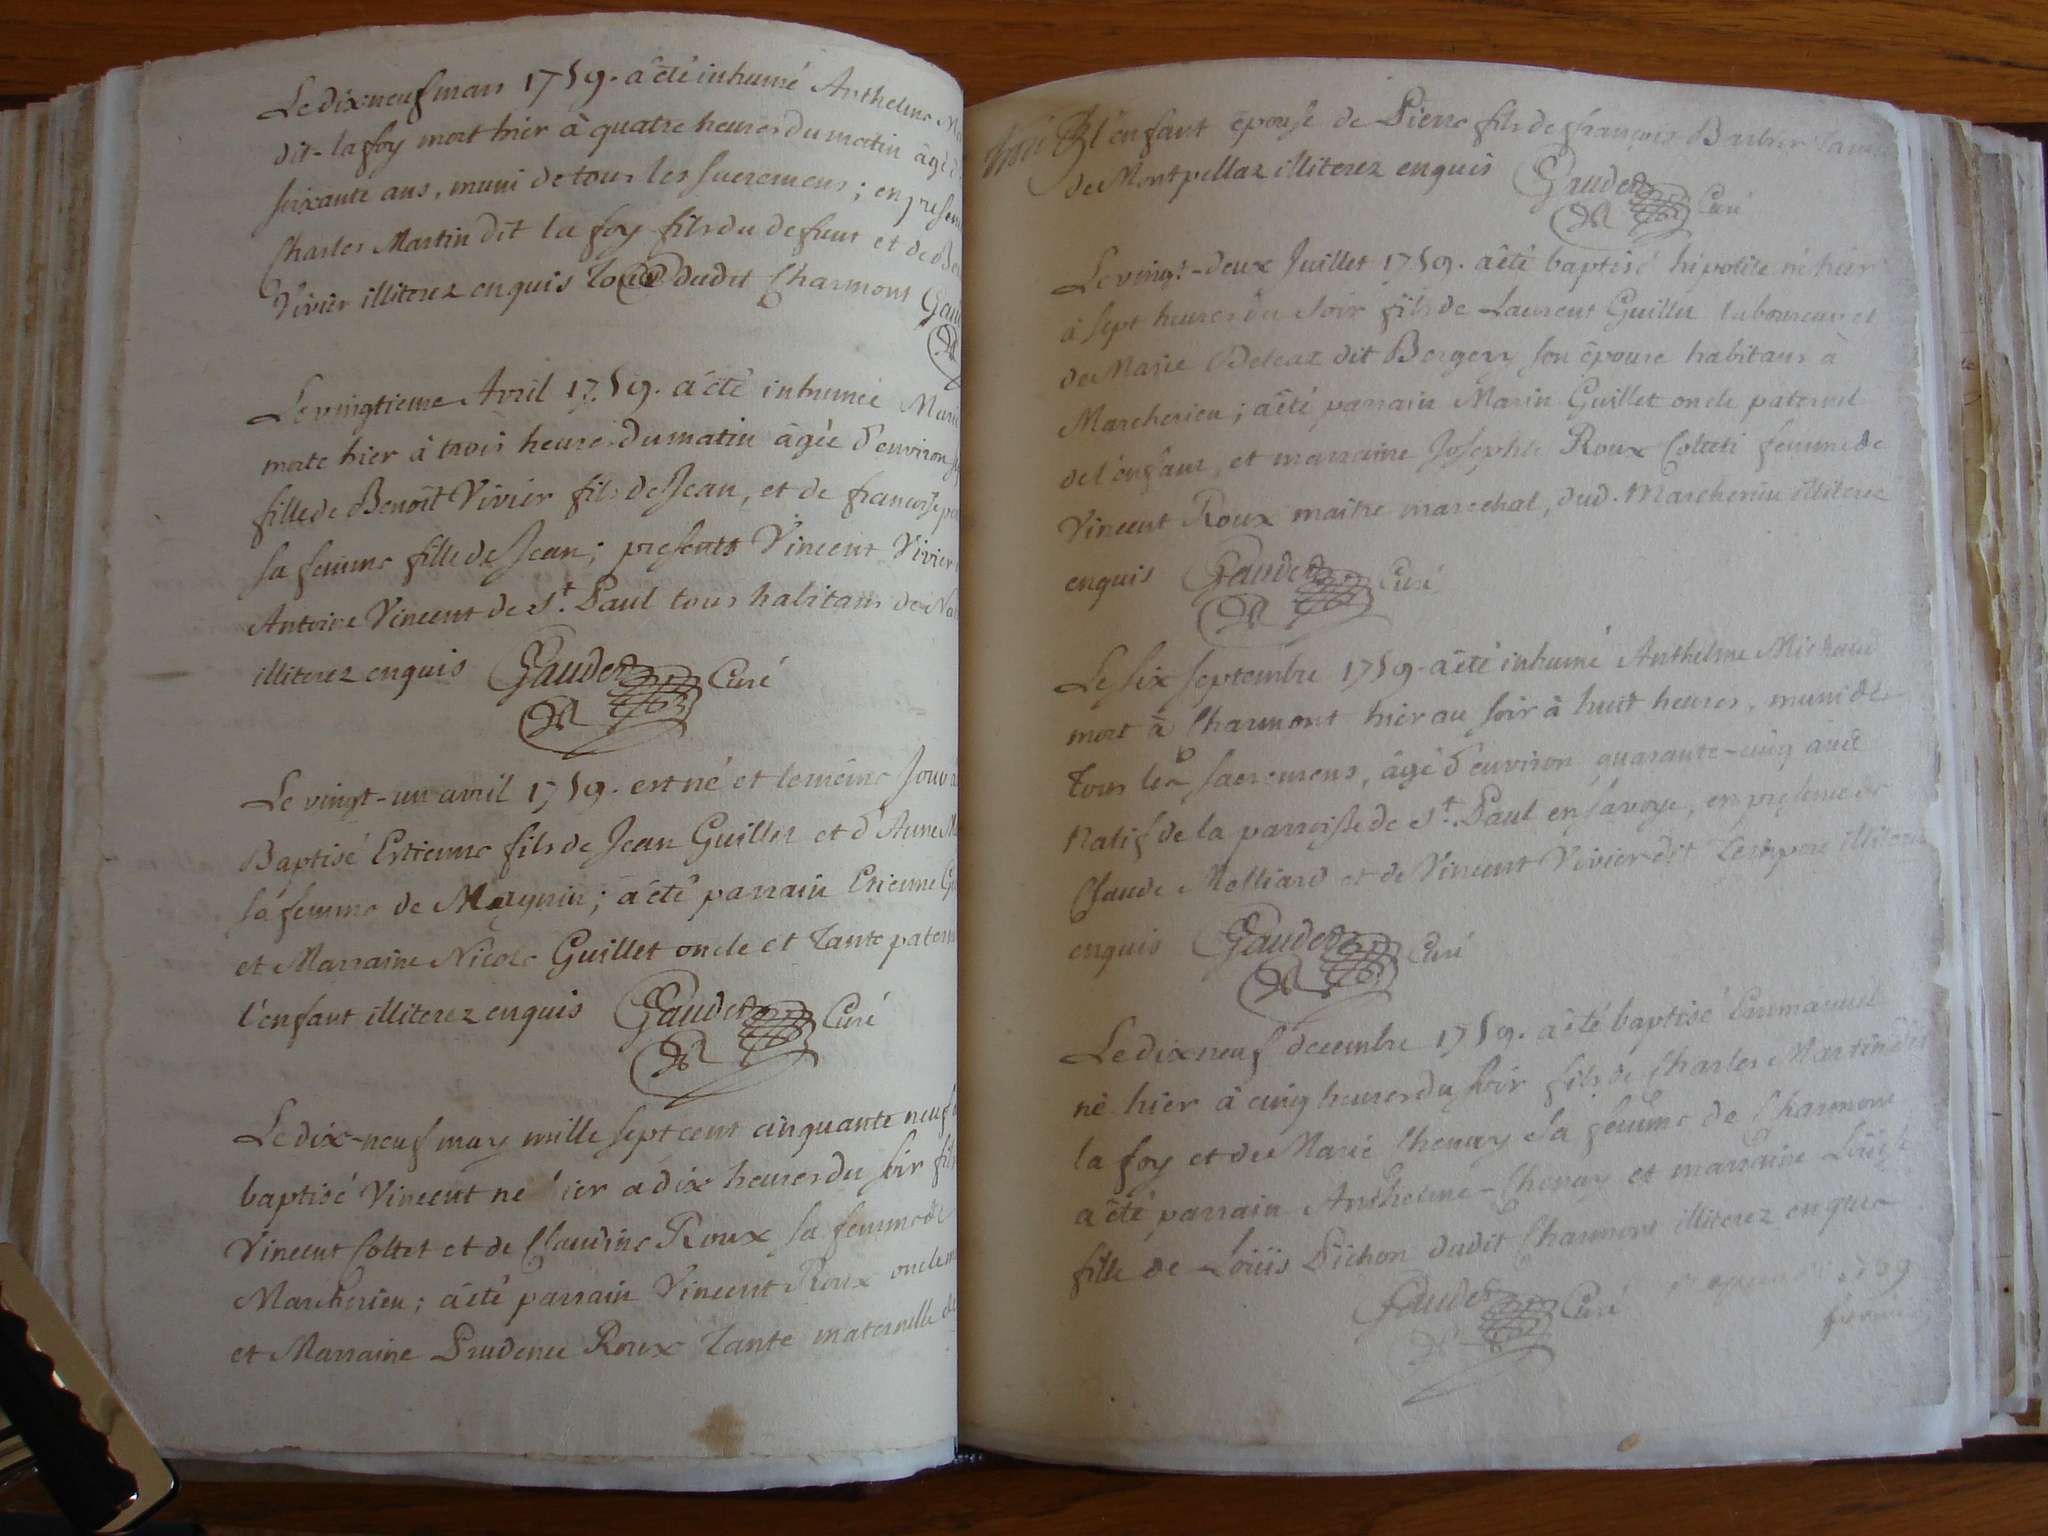 Le dix neuf mars 1759. a été inhumé Anthelme
dit la foy mort hier à quatre heures du matin âgé
soixante ans, muni de tous les sacremens; en presen
Charles Martin dit la foy fils du defunt et de
Vivier illiterez enquis dudit Charmont Gaud
Le vingtieme Avril 1759. a été inhumée Marie
morte hier à trois heures du matin âgée d'environ
fille de Benoît Vivier fils de Jean, et de francoise
sa femme fille de Jean; presents Vincent Vivier
Antoine Vincent de St. Paul tous habitans de
illiterez enquis Gaudet Curé
Le vingt-un avril 1759. est né et le même jour
Baptisé Estienne fils de Jean Guillet et d'Anne
sa femme de Magnin; a été parrain Etienne
et Marraine Nicole Guillet oncle et Tante patern
l'enfant illiterez enquis Gaudet Curé
Le dix-neuf may mille sept cent cinquante neuf
baptisé Vincent né hier a dix heures du soir fils
Vincent Coltet et de Claudine Roux sa femme de
Marcherieu; a été parrain Vincent Roux oncle
et Marraine Prudence Roux Tante maternelle de
l'enfant épouse de Pierre fils de françois Barbier
de Montpellaz illiterez enquis Gaudet Curé
Le vingt-deux Juillet 1759. a été baptisé hipolite né hier
à sept heures du soir fils de Laurent Guillet laboureur et
de Marie dit Berger son épouse habitans à
Marcherieu; a été parrain Marin Guillet oncle paternel
de l'enfant, et marraine Josephte Roux femme de
Vincent Roux maitre marechal, dud. Marcherieu illiterez
enquis Gaudet Curé
Le six septembre 1759. a été inhumé Anthelme Michaud
mort à Charmont hier au soir à huit heures, muni de
tous les sacremens, âgé d'environ quarante-cinq
natif de la parroisse de St. Paul en savoye, en presence de
Claude Molliard et de Vincent Vivier dit illiterez
enquis Gaudet Curé
Le dix neuf decembre 1759. a été baptisé Emmanuel
né hier à cinq heures du soir fils de Charles Martin dit
la foy et de Marie Chenay sa femme de Charmont
a été parrain Anthelme Chenay et marraine Loüise
fille de Loüis Pichon dudit Charmont illiterez enquis
Gaudet Curé